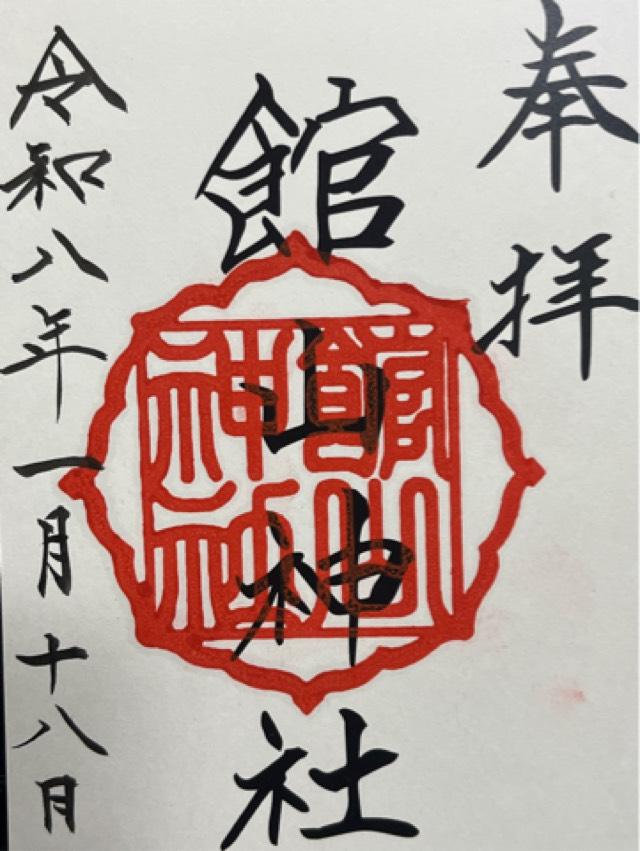 奉拝
館山神社
館山神社
令和八年一月十八日